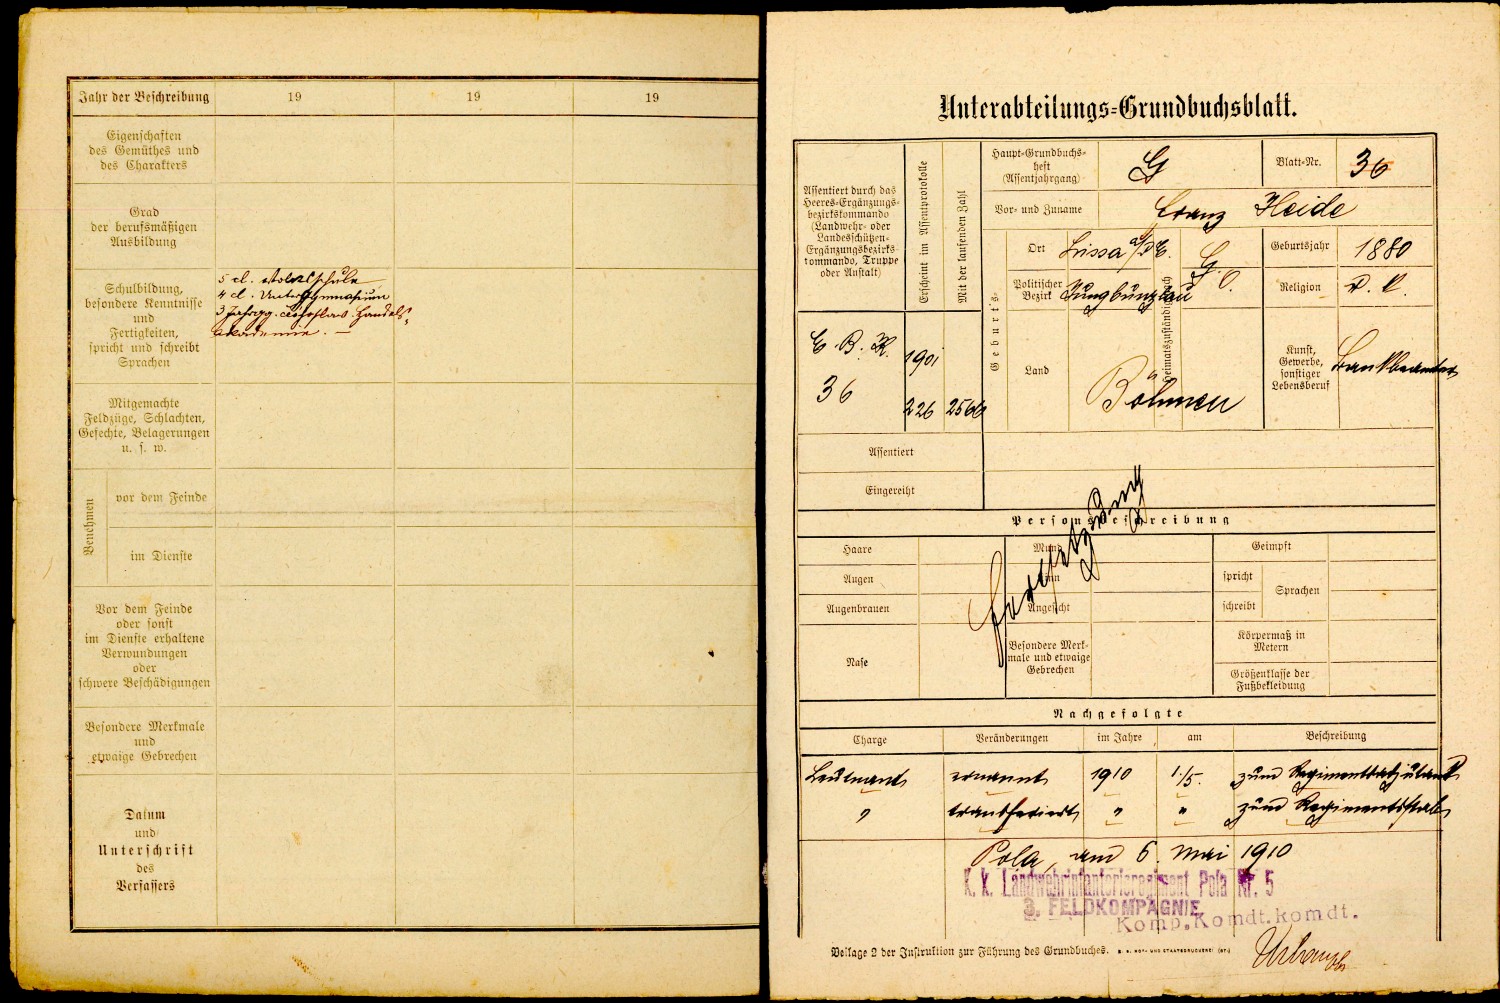 Jahr der Beschreibung 19 19 19
Eigenschaften
des Gemüthes und
des Charakters
Grad
der berufsmäßigen
Ausbildung
Schulbildung,
besondere Kenntnisse
und
Fertigkeiten,
spricht und schreibt
Sprachen
5 cl. Volksschule
4 cl. Untergymnasium
3 jahrg. Handels-
akademie. —
Mitgemachte
Feldzüge, Schlachten,
Gefechte, Belagerungen
u. s. w.
Benehmen
vor dem Feinde
im Dienste
Vor dem Feinde
oder sonst
im Dienste erhaltene
Verwundungen
oder
schwere Beschädigungen
Besondere Merkmale
und
etwaige Gebrechen
Datum
und
Unterschrift
des
Verfassers
Unterabteilungs-Grundbuchsblatt.
Assentiert durch das
Heeres-Ergänzungs-
bezirkskommando
(Landwehr- oder
Landesschützen-
Ergänzungsbezirks-
kommando, Truppe
oder Anstalt)
Erscheint im Assentprotokolle
Mit der laufenden Zahl
E. B. K.
36
1901
226 2566
Haupt-Grundbuchs-
heft
(Assentjahrgang)
G
Blatt-Nr. 36
Vor- und Zuname Franz Heide
Geburts-
Ort Lissa a/d E.
Politischer
Bezirk Jungbunzlau
Land Böhmen
Heimatszuständig nach
G. O.
Geburtsjahr 1880
Religion r. k.
Kunst,
Gewerbe,
sonstiger
Lebensberuf
Bankbeamter
Assentiert
Eingereiht
Personsbeschreibung
Haare
Augen
Augenbrauen
Nase
Mund
Kinn
Angesicht
Besondere Merk-
male und etwaige
Gebrechen
Geimpft
spricht
schreibt
Sprachen
Körpermaß in
Metern
Größenklasse der
Fußbekleidung
Fortsetzung
Nachgefolgte
Charge Veränderungen im Jahre am Beschreibung
Leutnant ernannt 1910 1./5. zum Regimentsadjutant
" transferiert " " zum Regimentsstab
Pola, am 6. Mai 1910
K. k. Landwehrinfanterieregiment Pola Nr. 5
3. FELDKOMPAGNIE
Komp. Komdt. komdt.
Beilage 2 der Instruktion zur Führung des Grundbuches. K. K. HOF- UND STAATSDRUCKEREI